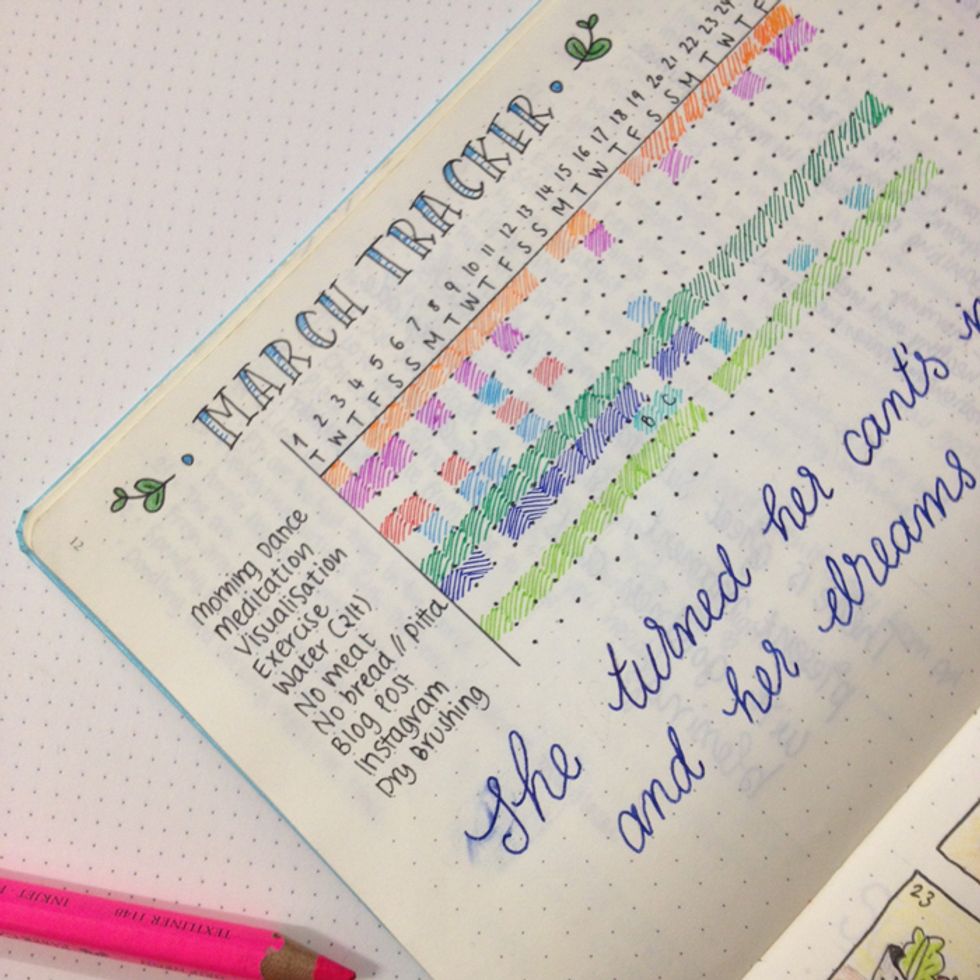 12
MARCH TRACKER
1 2 3 4 5 6 7 8 9 10 11 12 13 14 15 16 17 18 19 20 21 22 23 24
T W T F S S M T W T F S S M T W T F S S M T W T F
Morning Dance
Meditation
Visualisation
Exercise
Water (2lt)
No meat
No bread // Pitta
Blog Post
Instagram
Dry Brushing
B C
She turned her cants
and her dreams
23
TEXTLINER 1148
INKJET